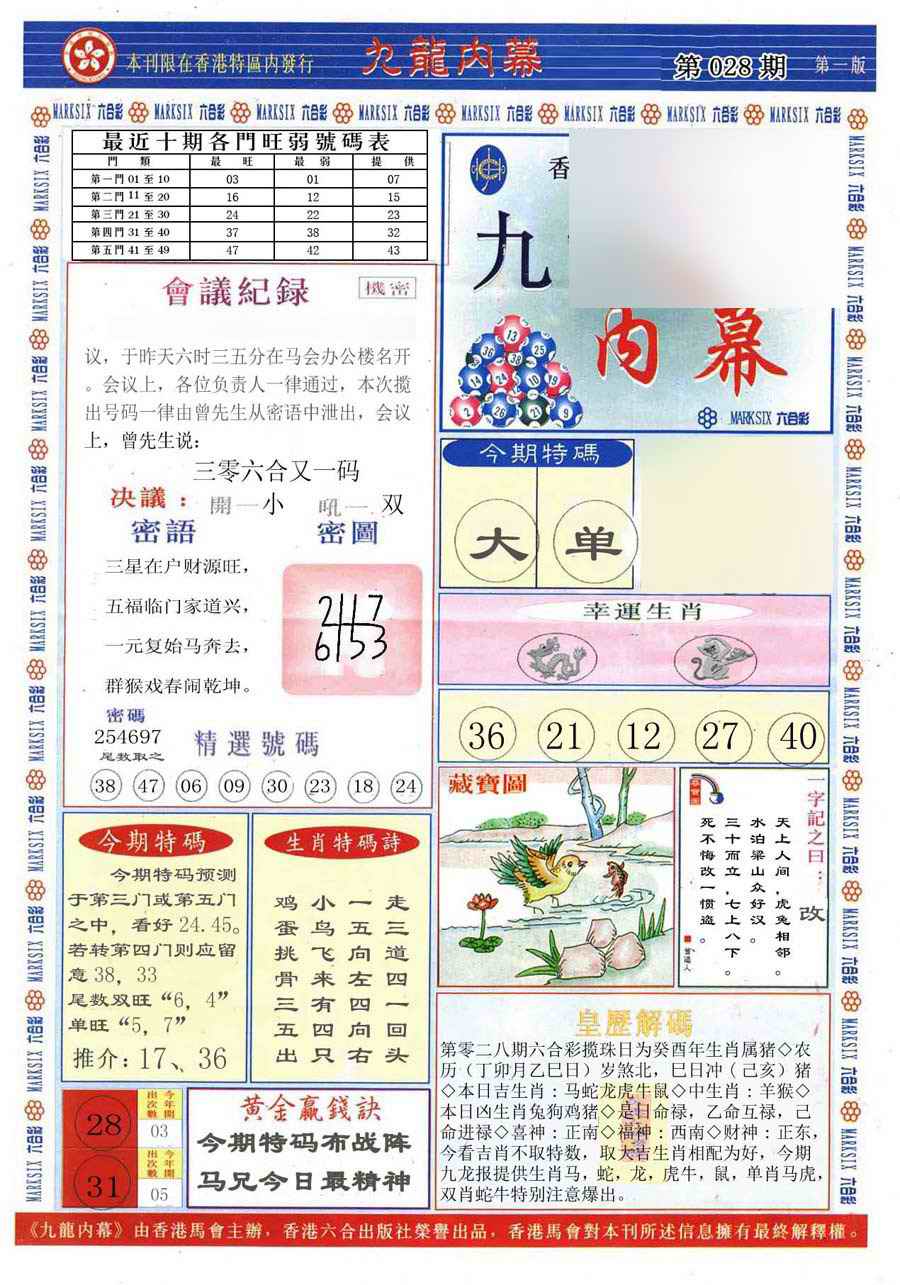 本刊限在香港特區内發行
九龍内幕
第 028 期
第一版
MARKSIX 六合彩
最近十期各門旺弱號碼表
門 類 最 旺 最 弱 提 供
第一門 01 至 10 03 01 07
第二門 11 至 20 16 12 15
第三門 21 至 30 24 22 23
第四門 31 至 40 37 38 32
第五門 41 至 49 47 42 43
會議紀録
機密
议，于昨天六时三五分在马会办公楼名开
。会议上，各位负责人一律通过，本次揽
出号码一律由曾先生从密语中泄出，会议
上，曾先生说：
三零六合又一码
决議： 開一小 吼一双
密語 密圖
三星在户财源旺，
五福临门家道兴，
一元复始马奔去，
群猴戏春闹乾坤。
2117
6153
密碼
254697
尾数取之
精選號碼
38 47 06 09 30 23 18 24
香
九
内幕
13
36 38 25
14 24 10 19
2 26 21 9
MARKSIX 六合彩
今期特碼
大 单
幸運生肖
36 21 12 27 40
藏寶圖
一字記之曰：改
天上人间，虎兔相邻。
水泊梁山众好汉。
三十而立，七上八下。
死不悔改一惯盗。
今期特碼
今期特码预测
于第三门或第五门
之中，看好 24.45。
若转第四门则应留
意 38，33
尾数双旺“6，4”
单旺“5，7”
推介：17、36
生肖特碼詩
走三道四一回头
一五向左四向右
小鸟飞来有四只
鸡蛋挑骨三五出
28
今年開出次數
03
31
今年開出次數
05
黄金赢錢訣
今期特码布战阵
马兄今日最精神
皇歷解碼
第零二八期六合彩揽珠日为癸酉年生肖属猪◇农
历（丁卯月乙巳日）岁煞北，巳日冲（己亥）猪
◇本日吉生肖：马蛇龙虎牛鼠◇中生肖：羊猴◇
本日凶生肖兔狗鸡猪◇是日命禄，乙命互禄，己
命进禄◇喜神：正南◇福神：西南◇财神：正东，
今看吉肖不取特数，取大吉生肖相配为好，今期
九龙报提供生肖马，蛇，龙，虎牛，鼠，单肖马虎，
双肖蛇牛特别注意爆出。
《九龍内幕》由香港馬會主辦，香港六合出版社榮譽出品，香港馬會對本刊所述信息擁有最終解釋權。